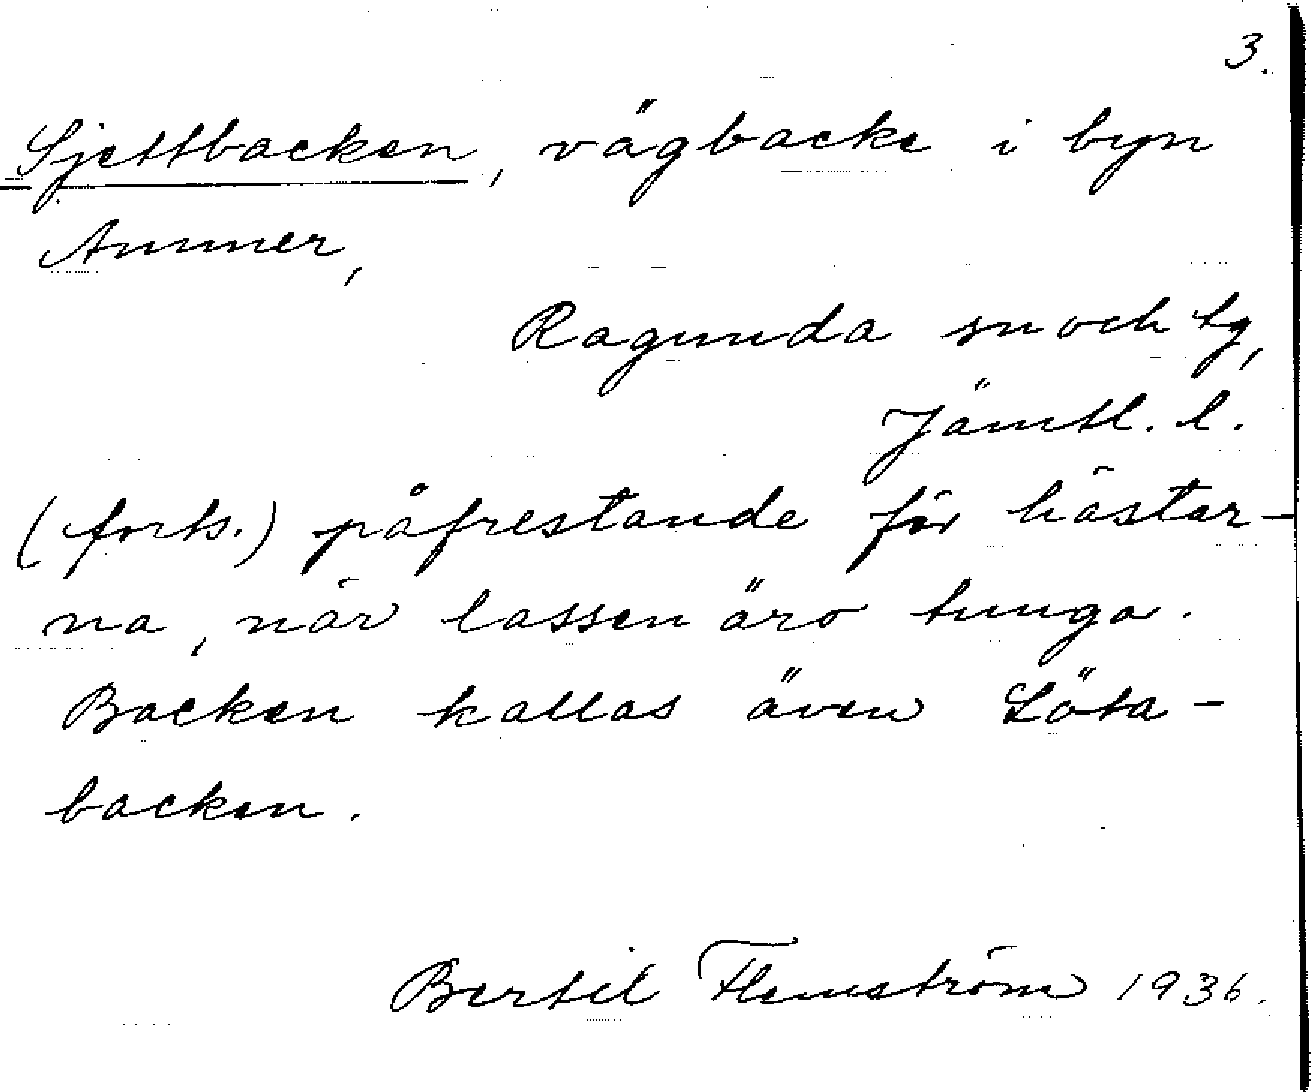 3.
Sjettbacken, vägbacke i byn
Ammer,
Ragunda sn och tg,
Jämtl. l.
(forts.) påfrestande för hästar-
na, när lassen äro tunga.
Backen kallas även Löta-
backen.
Bertil Flemström 1936.